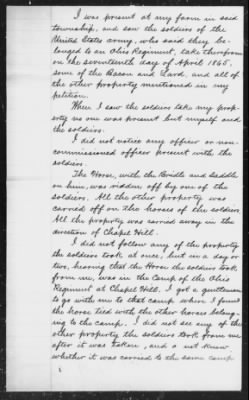 I was present at my farm in said
township, and saw the soldiers of the
United States army, who said they be-
longed to an Ohio Regiment, take therefrom
on the seventeenth day of April 1865.
some of the Bacon and Lard, and all of
the other property mentioned in my
petition.
When I saw the soldiers take my prop-
erty no one was present but myself and
the soldiers.
I did not notice any officer or non-
commissioned officer present with the
soldiers.
The Horse, with the Bridle and Saddle
on him, was ridden off by one of the
soldiers. All the other property was
carried off on the horses of the soldiers.
All the property was carried away in the
direction of Chapel Hill.
I did not follow any of the property
the soldiers took at once, but in a day or
two, hearing that the Horse the soldiers took
from me, was in the Camp of the Ohio
Regiment at Chapel Hill, I got a gentleman
to go with me to that camp where I found
the horse tied with the other horses belong-
ing to the camp. I did not see any of the
other property the soldiers took from me
after it was taken, and do not know
whether it was carried to the same camp